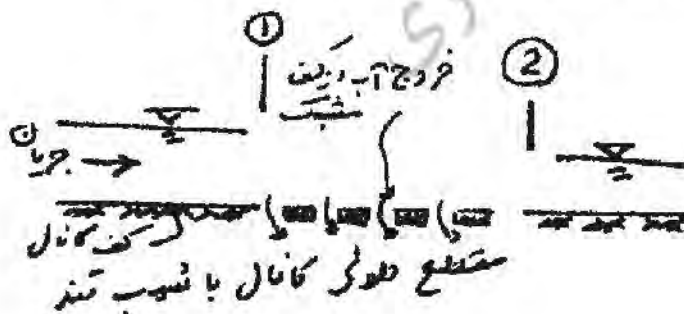 ①
②
خروج آب از کف
مشبک
جریان
کف کانال
مقطع طولی کانال با شیب تند